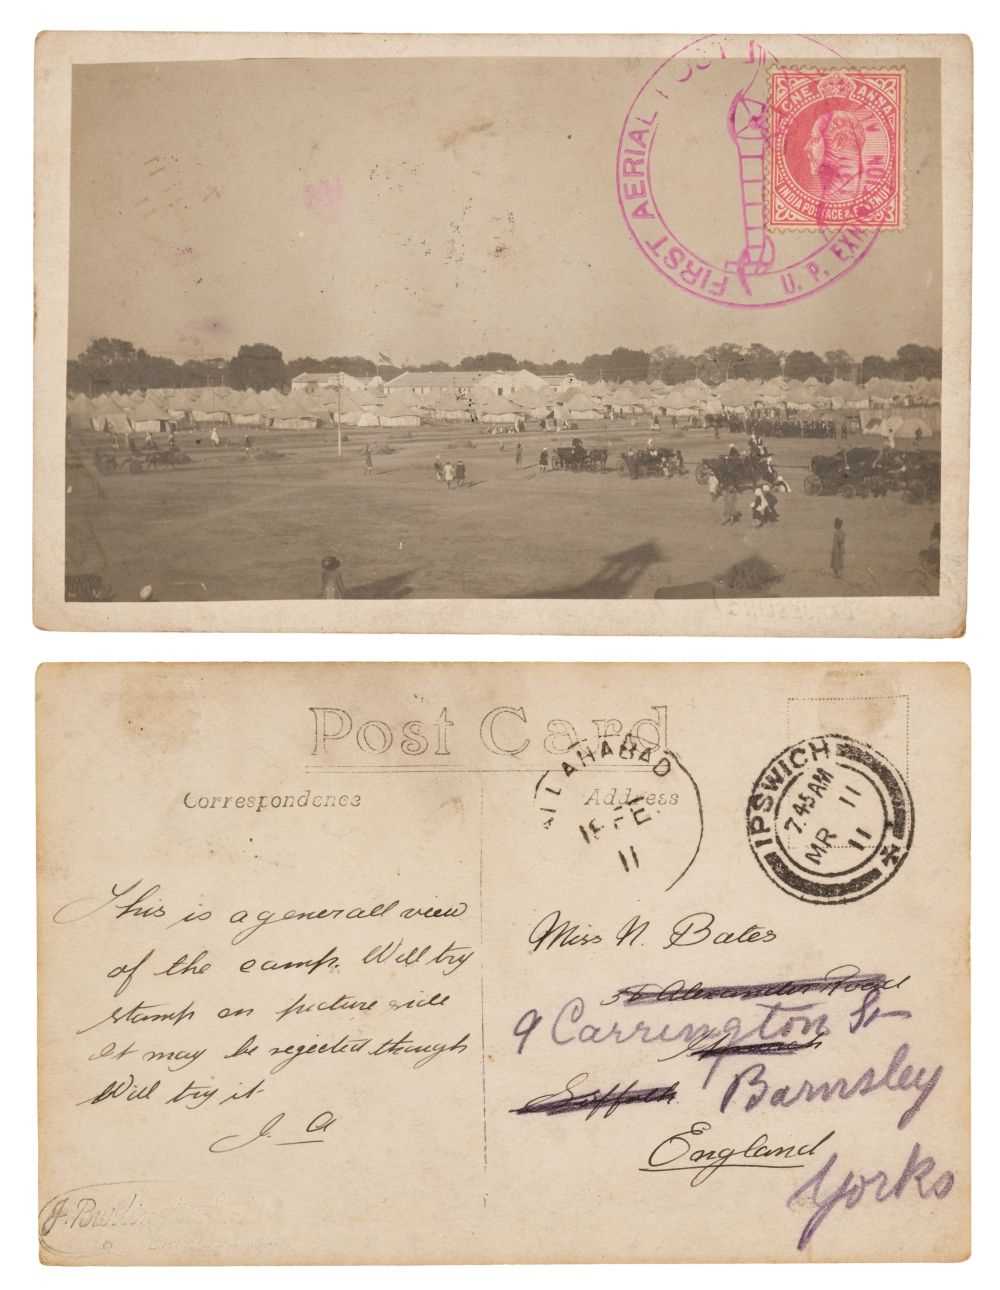 FIRST AERIAL POST
U. P. EXHIBITION
ONE ANNA
INDIA POSTAGE & REVENUE
Post Card
Correspondence
Address
ALLAHABAD
18 FE
11
IPSWICH
7.45 AM
MR 11
11
This is a generall view
of the camp. Will try
stamp on picture side
It may be rejected though
Will try it
J. A
Miss N. Bates
Alexander Road
9 Carrington St
Ipswich
Barnsley
Suffolk.
England
Yorks